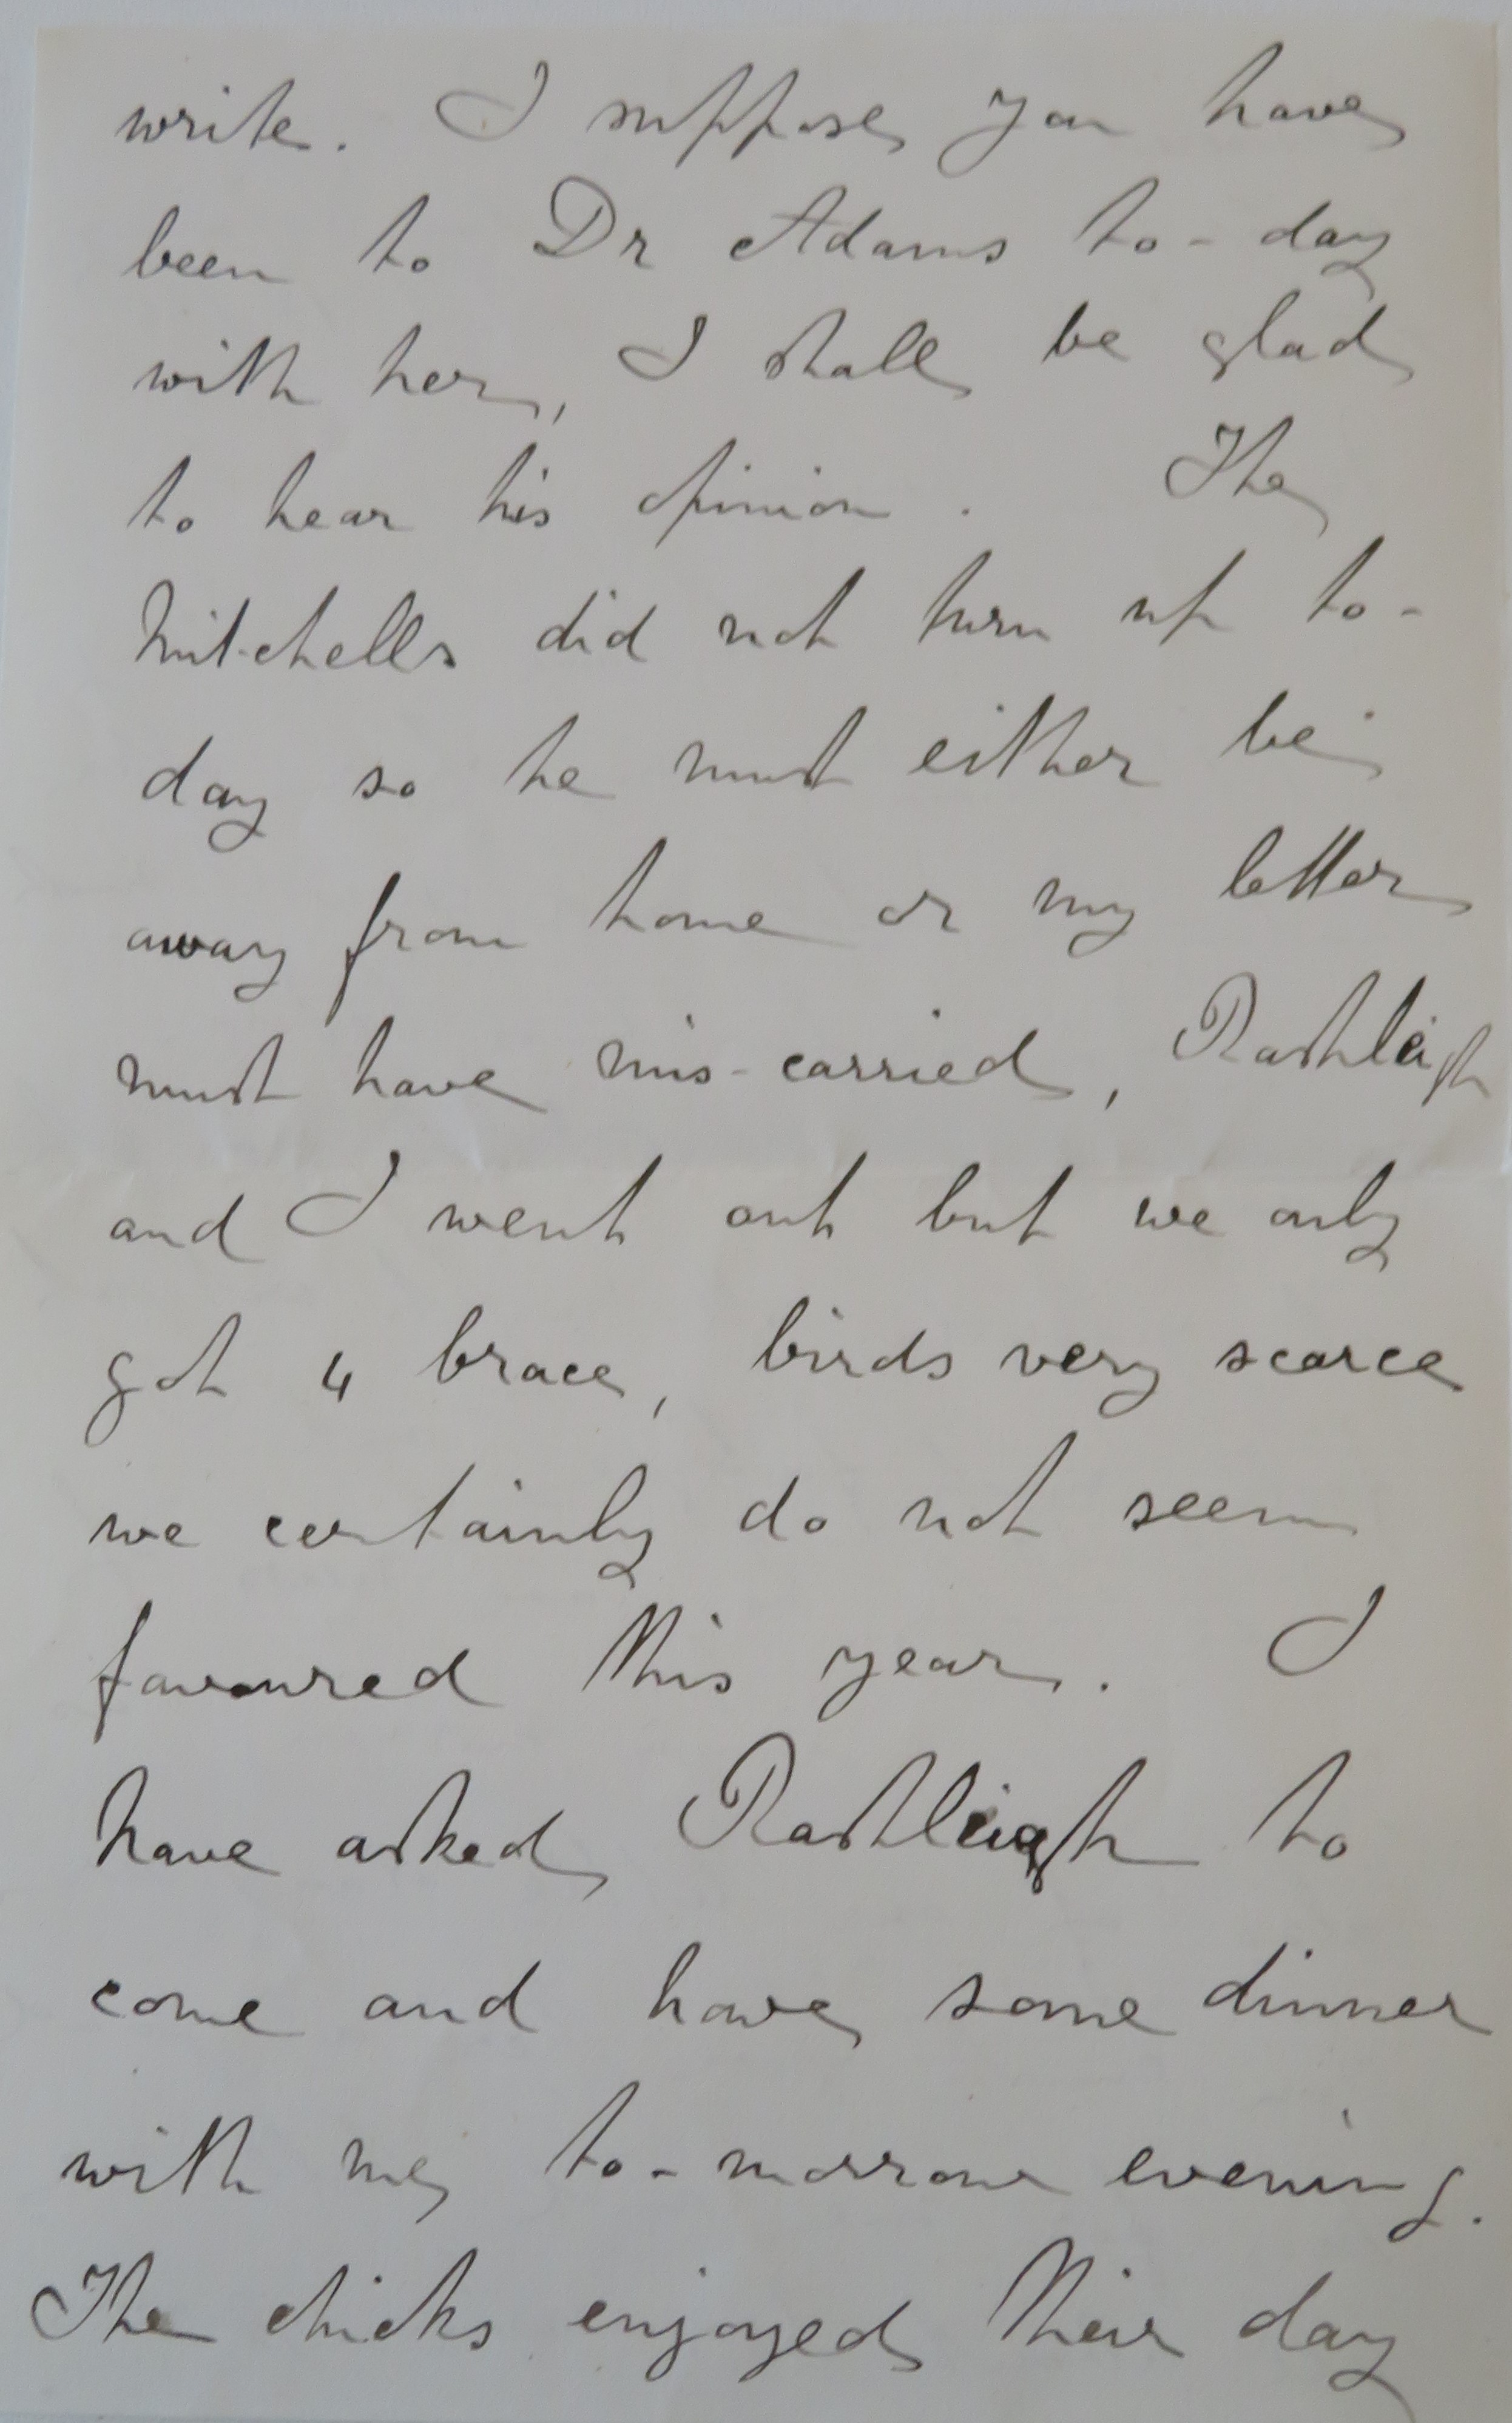 write. I suppose you have
been to Dr Adams to-day
with her, I shall be glad
to hear his opinion. The
Mitchells did not turn up to-
day so he must either be
away from home or my letter
must have mis-carried, Rashleigh
and I went out but we only
got 4 brace, birds very scarce
we certainly do not seem
favoured this year. I
have asked Rashleigh to
come and have some dinner
with me to-morrow evening.
The chicks enjoyed their day